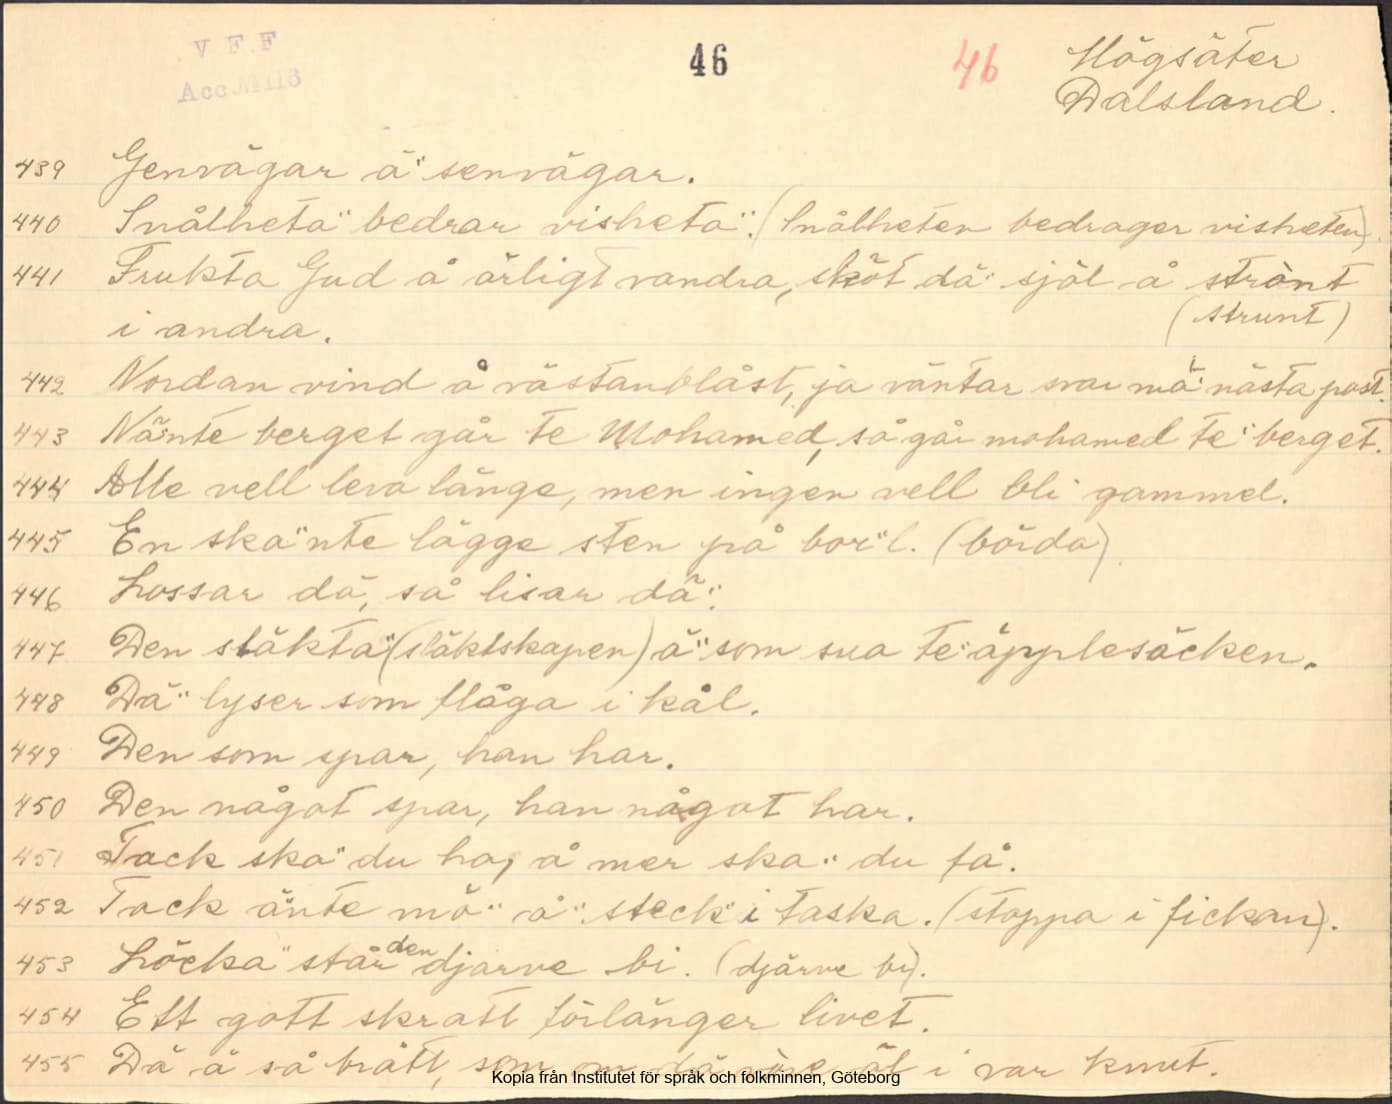 V F F
Acc № 116
46
46
Högsäter
Dalsland.
439 Genvägar ä" senvägar.
440 Snålheta" bedrar visheta". (Snålheten bedrager visheten).
441 Frukta Gud å ärligt vandra, sköt dä" själ å strònt
(strunt)
i andra.
442 Nordan vind å västanblåst, ja väntar svar mä" nästa post.
443 Nä"nte berget går te Mohamed, så går mohamed te" berget.
444 Alle vell leva länge, men ingen vell bli gammel.
445 En ska"nte lägge sten på bor"l. (börda).
446 Lossar dä, så lisar dä".
447 Den släkta" (släktskapen) ä" som sua te" äpplesäcken.
448 Dä" lyser som flåga i kål.
449 Den som spar, han har.
450 Den något spar, han något har.
451 Tack ska" du ha, å mer ska" du få.
452 Tack änte mö" å" steck" i taska. (stoppa i fickan).
453 Löcka" står den djarve bi. (djärve bi).
454 Ett gott skratt förlänger livet.
455 Dä ä så brått, som om dä i var knut.
Kopia från Institutet för språk och folkminnen, Göteborg